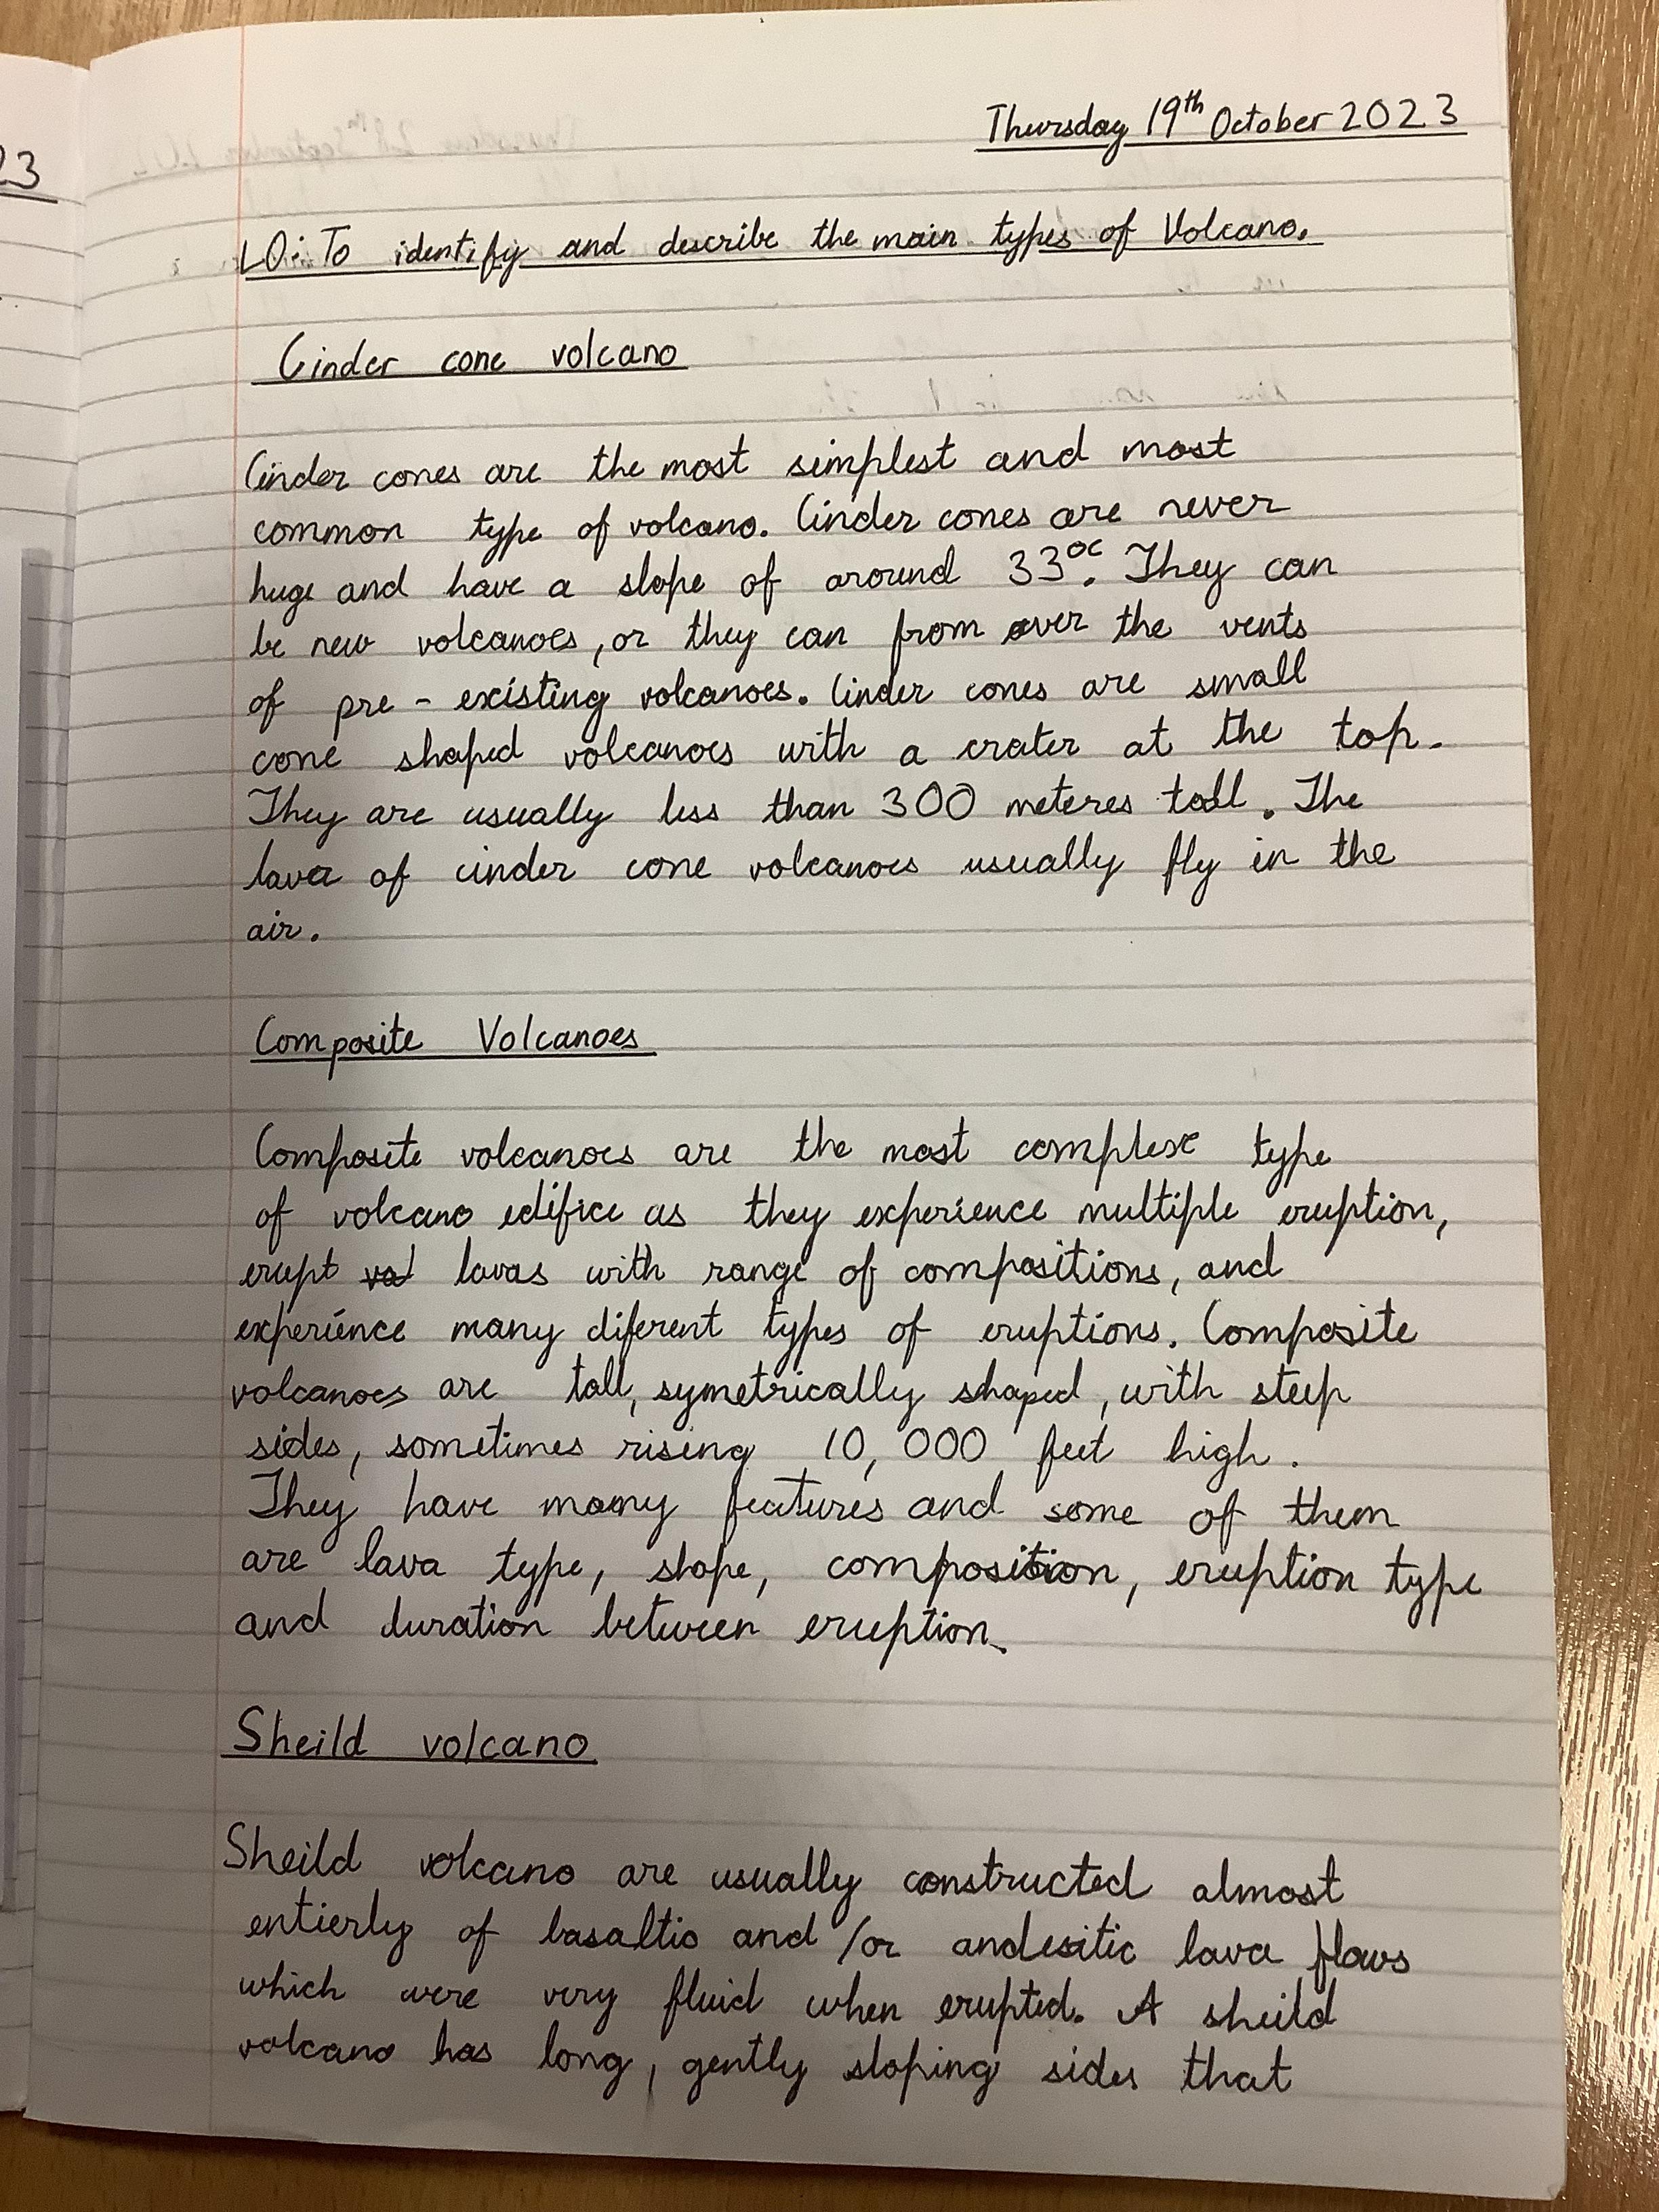 23
Thursday 19th October 2023
LO: To identify and describe the main types of Volcano.
Cinder cone volcano
Cinder cones are the most simplest and most
common type of volcano. Cinder cones are never
huge and have a slope of around 33°c. They can
be new volcanoes, or they can from over the vents
of pre-existing volcanoes. Cinder cones are small
cone shaped volcanoes with a crater at the top.
They are usually less than 300 meteres tall. The
lava of cinder cone volcanoes usually fly in the
air.
Composite Volcanoes
Composite volcanoes are the most complex type
of volcano edifice as they experience multiple eruption,
erupt lavas with range of compositions, and
experience many diferent types of eruptions. Composite
volcanoes are tall, symetrically shaped, with steep
sides, sometimes rising 10,000 feet high.
They have many features and some of them
are lava type, slope, composition, eruption type
and duration between eruption.
Sheild volcano
Sheild volcano are usually constructed almost
entierly of basaltic and/or andesitic lava flows
which were very fluid when erupted. A sheild
volcano has long, gently sloping sides that